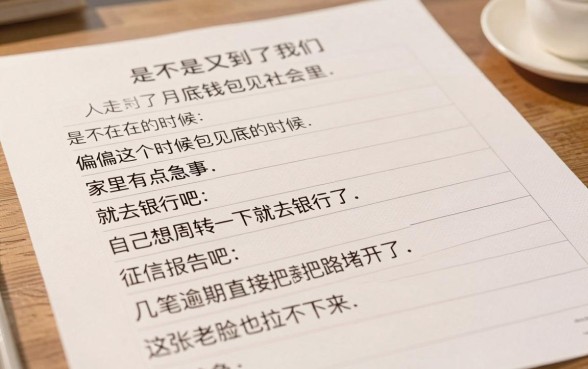 是不是又到了我们
人走到了月底钱包见社会里.
是不在在的时候:
偏偏这个时候包见底的时候.
家里有点急事.
就去银行吧:
自己想周转一下就去银行了.
征信报告吧:
几笔逾期直接把把路堵开了.
这张老脸也拉不下来.